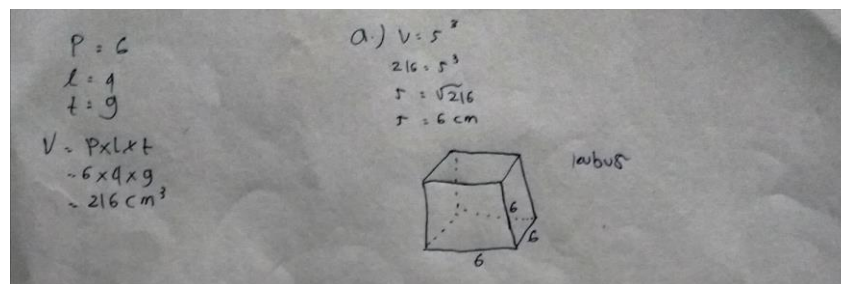 P = 6
l = 4
t = 9
V = P x l x t
= 6 x 4 x 9
= 216 cm³
a.) V = s³
216 = s³
s = √216
s = 6 cm
kubus
6
6
6